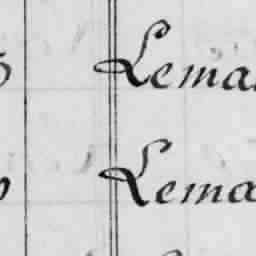 Lema
Lema